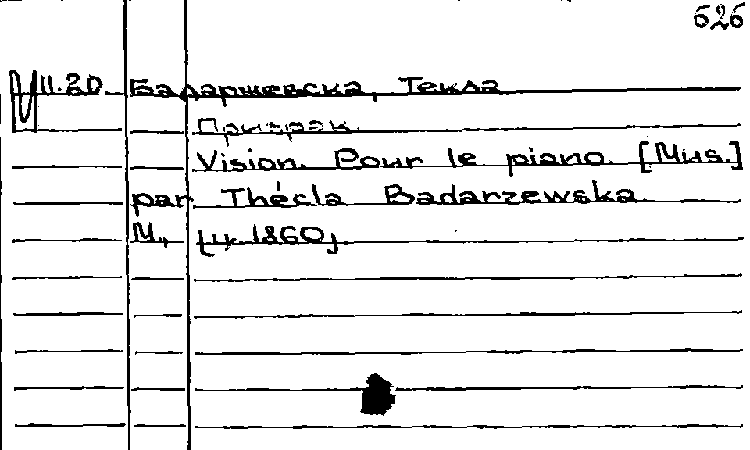 626
II.20 Бадаржевска, Текла
Призрак.
Vision. Pour le piano. [Mus.]
par Thécla Badarzewska.
М., [ц. 1860].